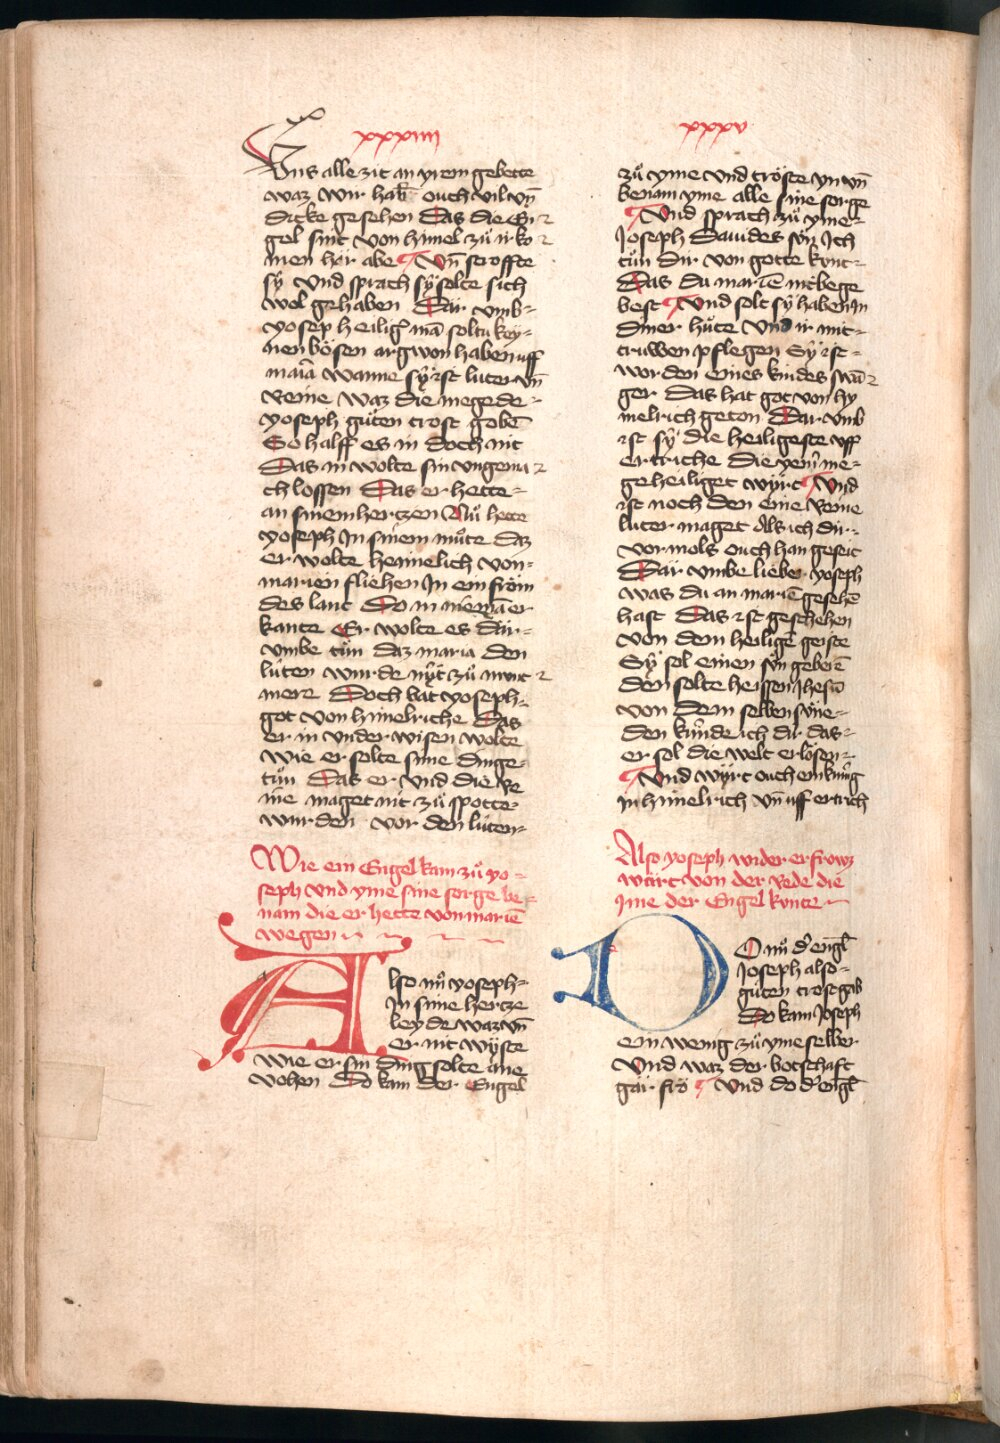 xxxiiii
Sÿns alle zit an yrem gebette
waz wir hab̄ ouch vil vn̄
dicke gesehen Das die En
gel sint von himel zuͦ ir ko
men har abe Vn̄ stroffte
sÿ vnd sprach sÿ solte sich
wol gehaben Dar vmb
yoseph heilig̉ mā soltu key
nen bösen argwon haben uff
maīa wanne sÿ ist luter vn̄
reine waz die megede
yoseph guͦten trost gobē
So halff es in doch nit
Das in wolte sin vngema
ch lossen Das er hette
an sinem hertzen Nuͦ hette
yoseph In sinem muͦte daz
er wolte heimelich von
marien fliehen In ein fröm
des lant Do in niemā er
kante Er wolte es dar
vmbe tuͦn daz maria den
lüten wurde nÿt zuͦ nunt
mere Doch bat yoseph
got von himelriche Das
er in vnder wisen wolte
wie er solte sine dinge
tuͦn Das er vnd die Re
ine maget nit zuͦ spotte
wurden vor den lüten
Wie ein Engel kam zuͦ yo
seph vnd yme sine sorge be
nam die er hette von mariē
wegen
Also nuͦ yoseph
In sime hertze
leyde waz vn̄
er nit wÿste
wie er sin ding solte ane
vohen Do kam der Engel
xxxv
zuͦ yme vnd tröste yn vn̄
benam yme alle sine sorge
Vnd sprach zuͦ yme
Joseph Dauides sün Ich
tuͦn dir von gotte kunt
Das du mariē nit bege
best Vnd solt sÿ haben In
diner huͦte Vnd ir mit
truwen pflegen Sÿ ist
worden eines kindes swā
ger Das hat got von hy
melrich geton Dar vmb
ist sÿ die heiligeste vff
ertriche die yem̄ me
geheiliget wÿrt Vnd
ist noch den eine Reine
luter maget Als ich dir
vormols ouch han geseit
Dar vmbe lieber yoseph
was du an mariē gesehē
hast Das ist geschehen
von dem heiligē geiste
Sÿ sol einen sün geberē
den solte heissen Jhesū
von dem selben süne
den künde ich dir das
er sol die welt erlösen
Vnd wÿrt ouch ein künig
in himelrich vn̄ uff ertrich
Also yoseph wider erfrowz
wart von der Rede die
Ime der Engel kunte
DO nuͦ d̉ enḡl
Joseph also
guͦten trost gab
Do kam Joseph
ein wenig zuͦ yme selber
Vnd waz der botschaft
gar fro Vnd do d̉ enḡl